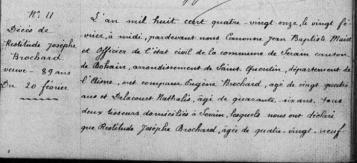 N° 11
Décès de
Restitude Josèphe
Brochard
veuve - 89 ans
Du 20 février
L'an mil huit cent quatre-vingt onze, le vingt fé
vrier, à midi, pardevant nous Canonne Jean Baptiste Maire
et Officier de l'état civil de la commune de Serain canton
de Bohain, arrondissement de Saint Quentin, département de
l'Aisne, ont comparu Eugène Brochard, âgé de vingt quatre
ans et Delacourt Nathalis, âgé de quarante-six ans, tous
deux tisseurs domiciliés à Serain, lesquels nous ont déclaré
que Restitude Josèphe Brochard, âgée de quatre-vingt-neuf